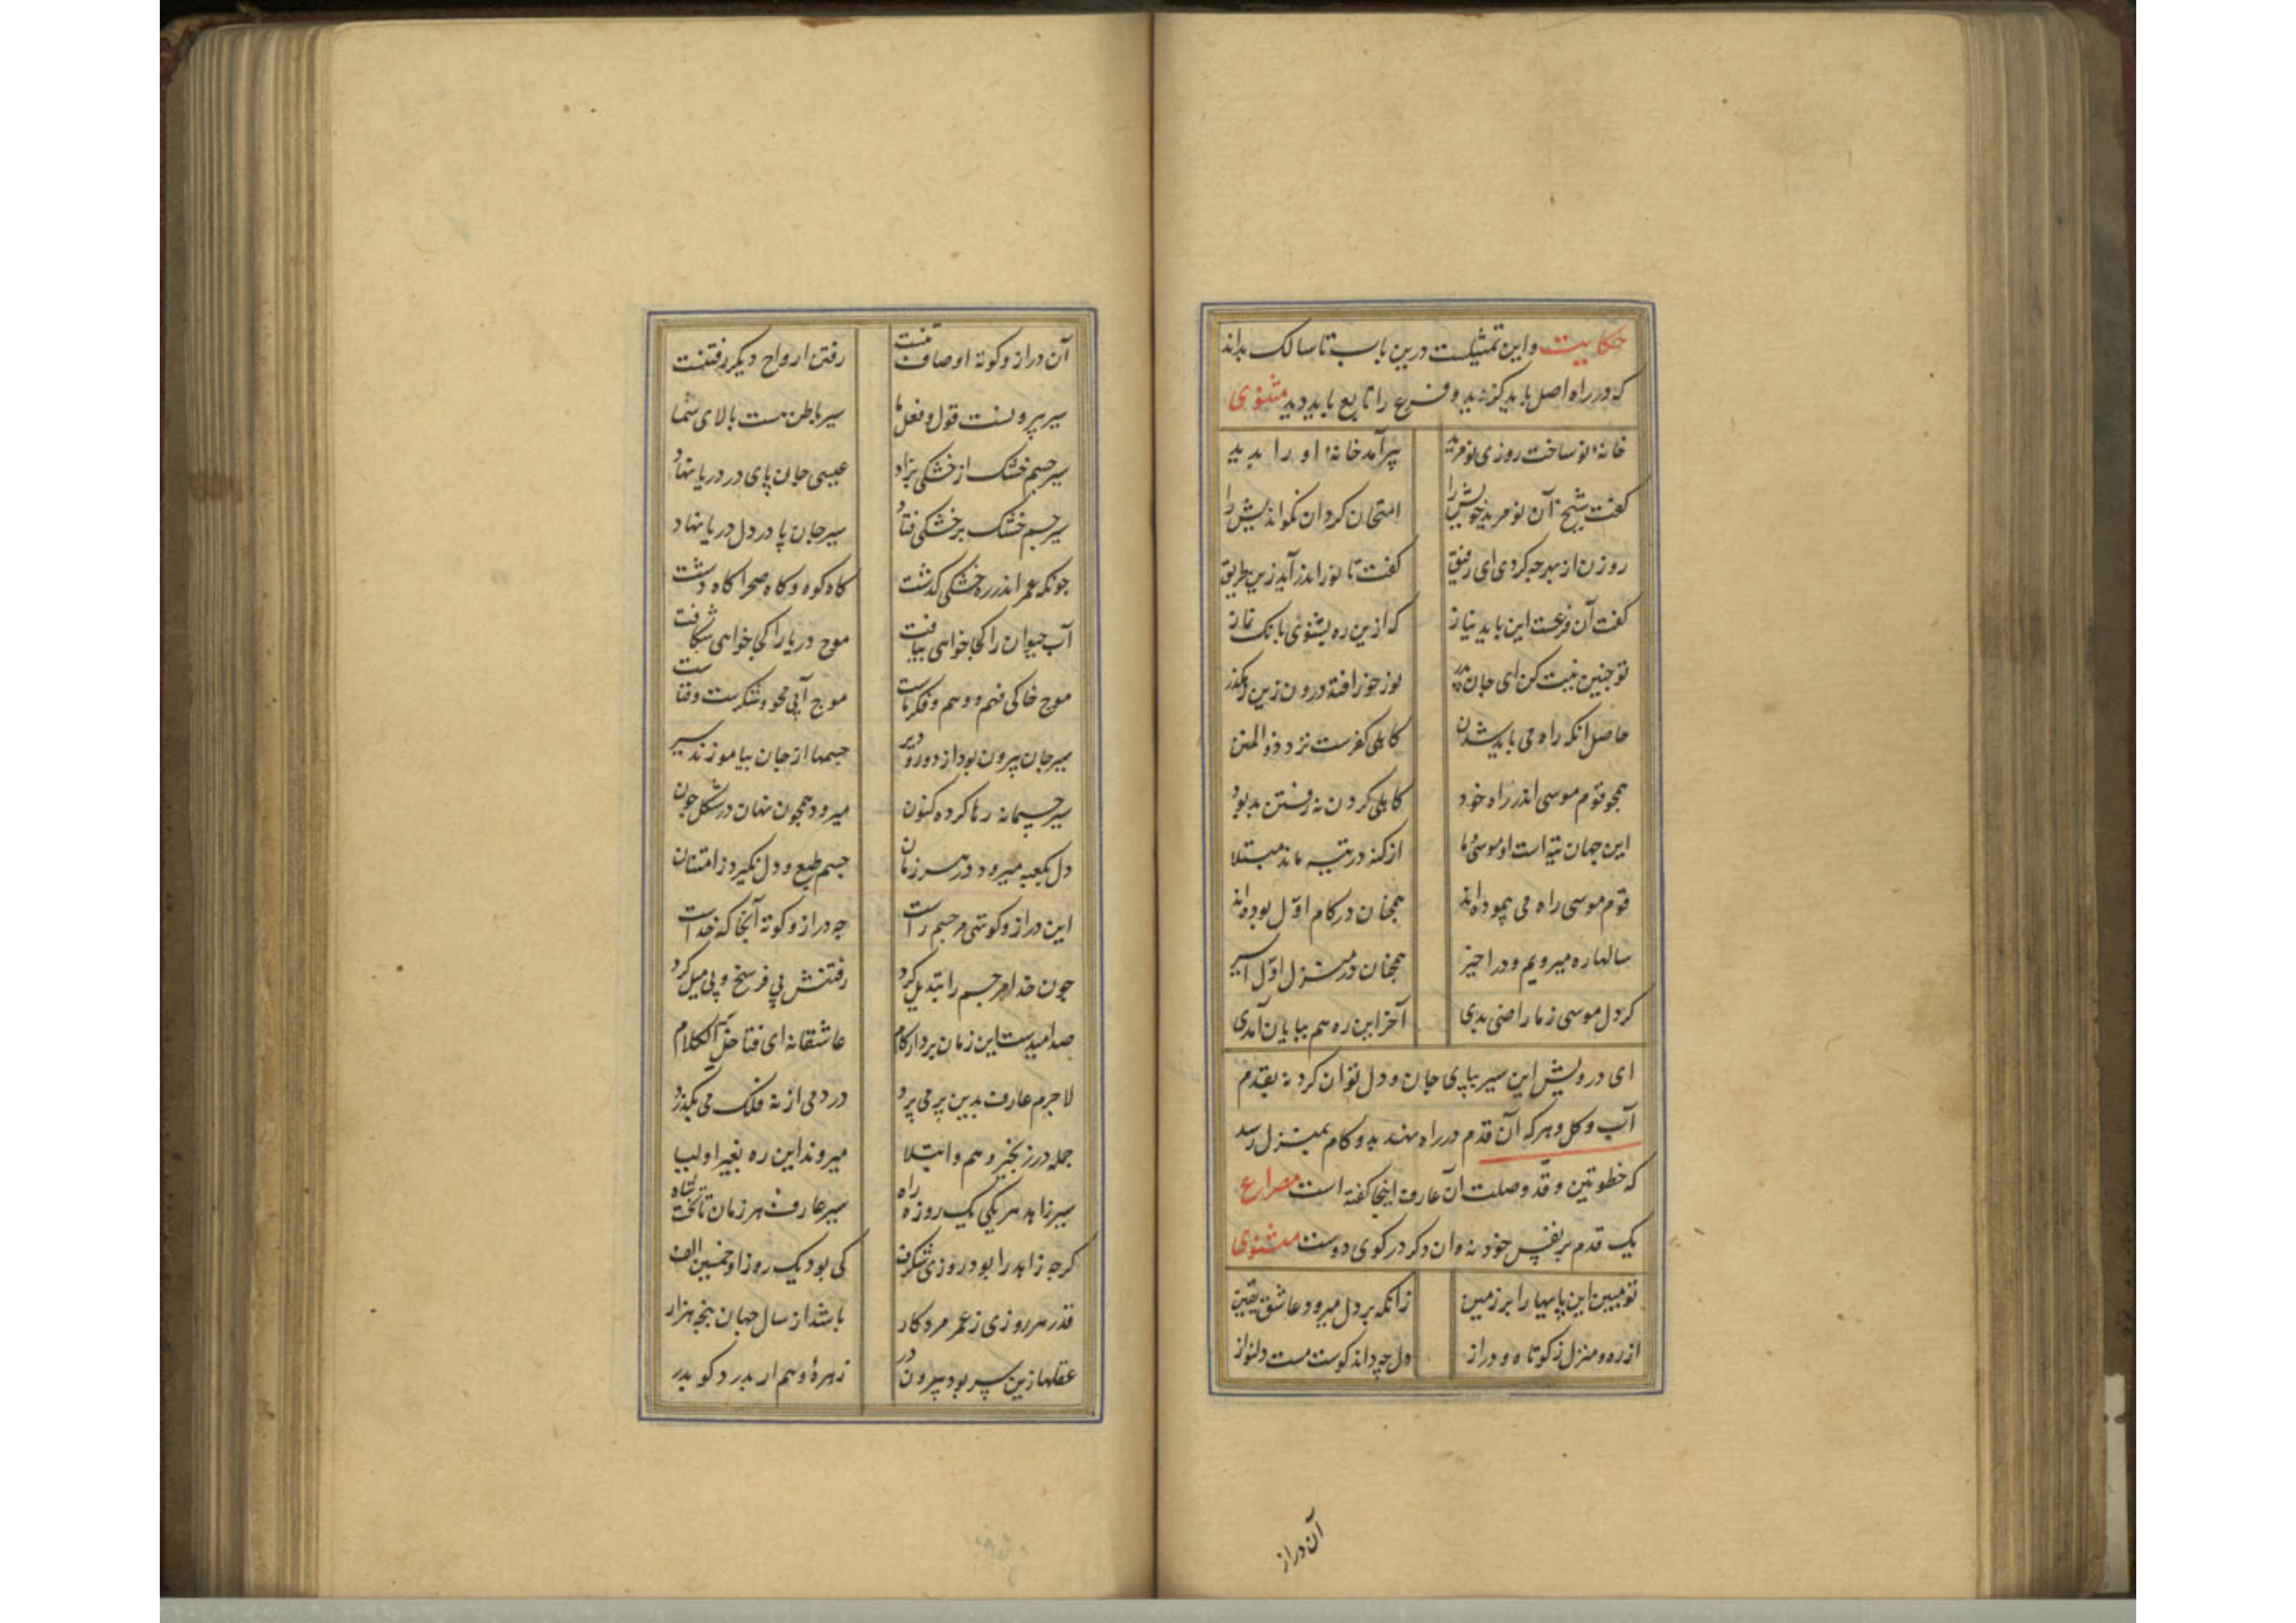 حکایت واین تمثیلست درین باب تا سالک بداند
که در راه اصل باید گزید و فرع را تابع باید دید مثنوی
خانهٔ نو ساخت روزی نو مرید پیر آمد خانهٔ او را بدید
گفت شیخ آن نو مرید خویش را امتحان کرد آن نکو اندیش را
روزن از بهر چه کردی ای رفیق گفت تا نور اندر آید زین طریق
گفت آن فرعست این باید نیاز که ازین ره بشنوی بانگ نماز
تو چنین نیت کن ای جان پدر نور خوز افتد درون زین رهگذر
حاصل آنکه راه می باید شدن کاهلی کفرست نزد ذو المنن
همچو قوم موسی اندر راه خود کاهلی کردن نه رفتن بد بود
این جهان تیه است او موسی و ما از گنه در تیه مانده مبتلا
قوم موسی راه می پیموده اند همچنان در کام اوّل بوده اند
سالها ره میرویم و در اخیر همچنان در منزل اوّل اسیر
گر دل موسی ز ما راضی بدی آخر این ره هم بپایان آمدی
ای درویش این سیر بپای جان و دل توان کرد نه بقدم
آب و گل و هر که آن قدم در راه نهد بدو کام بمنزل رسد
که خطوتین و قد وصلت آن عارف اینجا گفته است مصراع
یک قدم بر نفس خود نه وان دگر در کوی دوست مثنوی
تو مبین این پایها را بر زمین زانکه بر دل میرود عاشق یقین
از ره و منزل ز کوتاه و دراز دل چه داند کوست مست دلنواز
آن دراز
آن دراز و کوته اوصاف تنست رفتن ارواح دیگر رفتنست
سیر بیرونست قول و فعل ما سیر باطن هست بالای شما
سیر جسم خشک از خشکی بزاد عیسی جان پای در دریا نهاد
سیر جسم خشک بر خشکی فتاد سیر جان پا در دل دریا نهاد
چونکه عمر اندر ره خشکی گذشت گاه کوه و گاه صحرا گاه دشت
آب حیوان را کجا خواهی بیافت موج دریا را کجا خواهی شکافت
موج خاکی فهم و وهم و فکر ماست موج آبی محو و شکرست و فناست
سیر جان بیرون بود از دور و دیر جسمها از جان بیاموزند سیر
سیر جسمانه رها کرده کنون میرود همچون نهان در شکل چون
دل بکعبه میرود در هر زمان جسم طبع و دل نگیرد ز امتنان
این دراز و کوتهی مر جسم راست چه دراز و کوته آنجا که خداست
چون خدا مر جسم را تبدیل کرد رفتنش بی فرسخ و بی میل کرد
صد امیدست این زمان بردار کام عاشقانه ای فتا خلّ الکلام
لا جرم عارف بدین پر می پرد در دمی از نه فلک می بگذرد
جمله در زنجیر وهم و ابتلا میروند این ره بغیر اولیا
سیر زاهد هر یکی یک روزه راه سیر عارف هر زمان تا تخت شاه
گرچه زاهد را بود روزی شگرف کی بود یک روز او خمسین الف
قدر هر روزی ز عمر مرد کار باشد از سال جهان پنجه هزار
عقلها زین سر بود بیرون در زهرهٔ وهم ار بدرد گو بدر